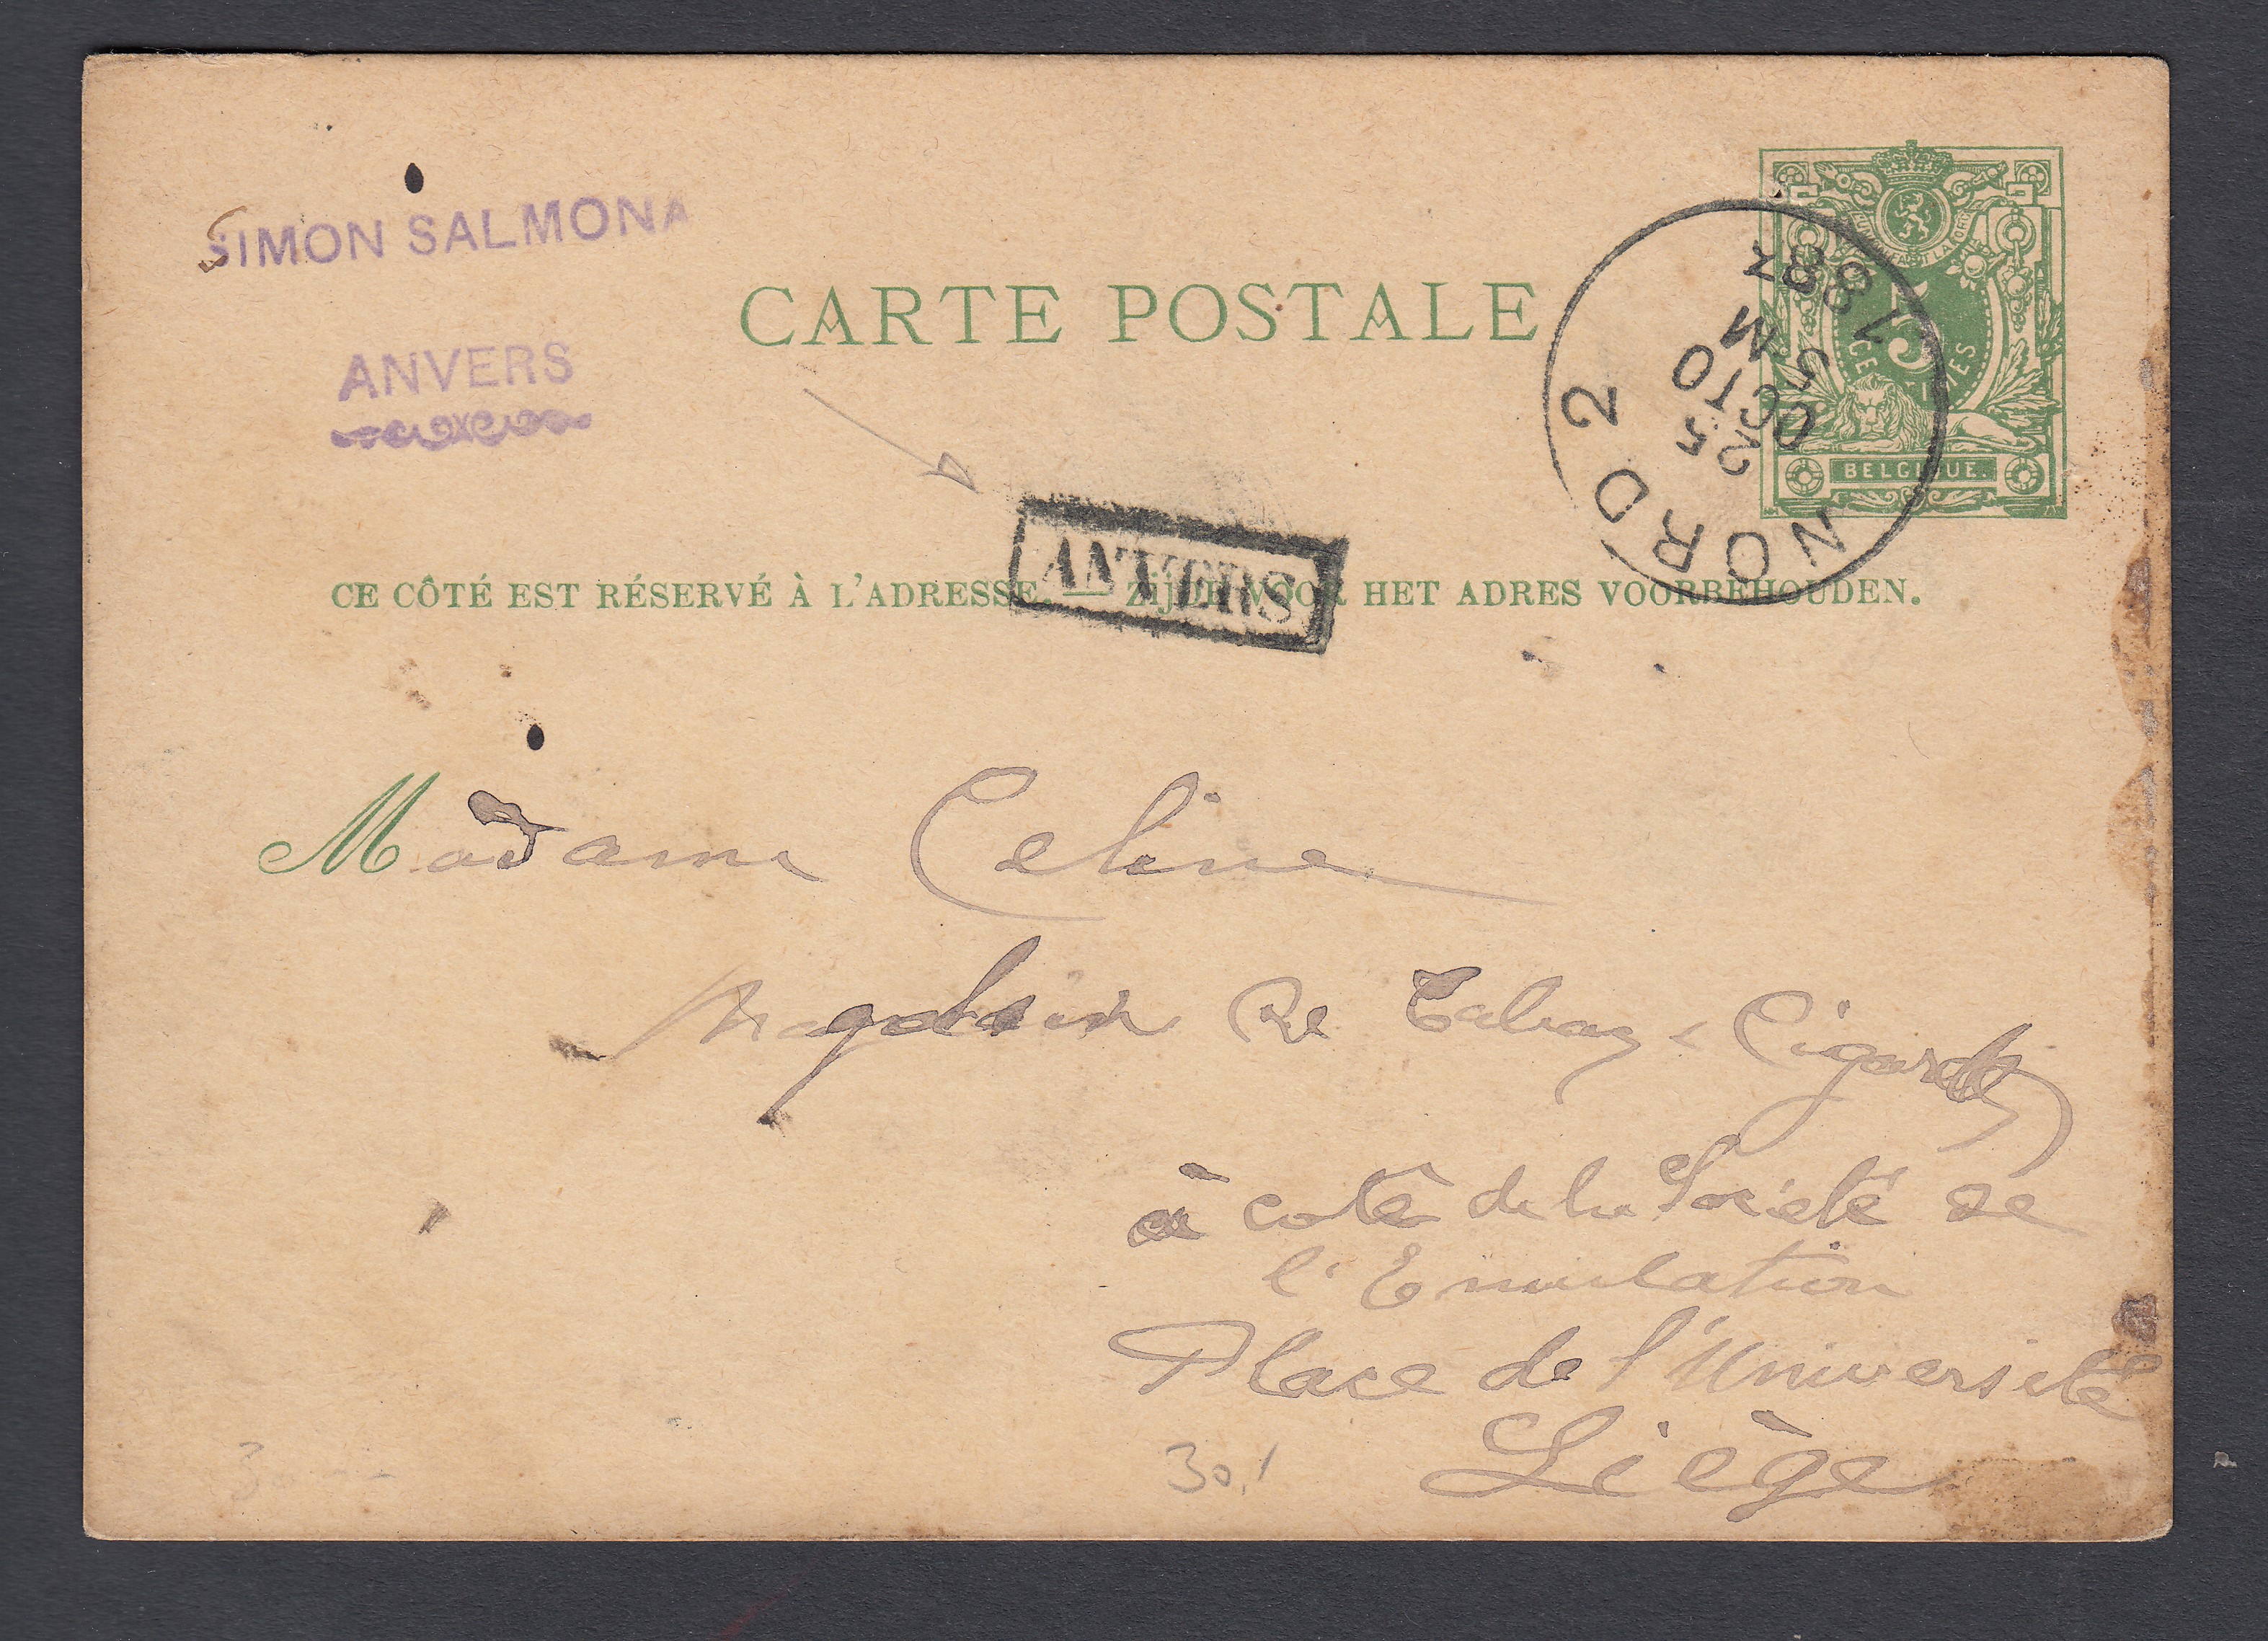 SIMON SALMONA
ANVERS
CARTE POSTALE
5
CENTIMES
BELGIQUE.
NORD 2
25
OCTO
5 M
1887
ANVERS
CE CÔTÉ EST RÉSERVÉ À L'ADRESSE. — ZIJDE VOOR HET ADRES VOORBEHOUDEN.
Madame Celine
Magasin de Tabacs & Cigares
à coté de la Société de
l'Emulation
Place de l'Université
Liège
30